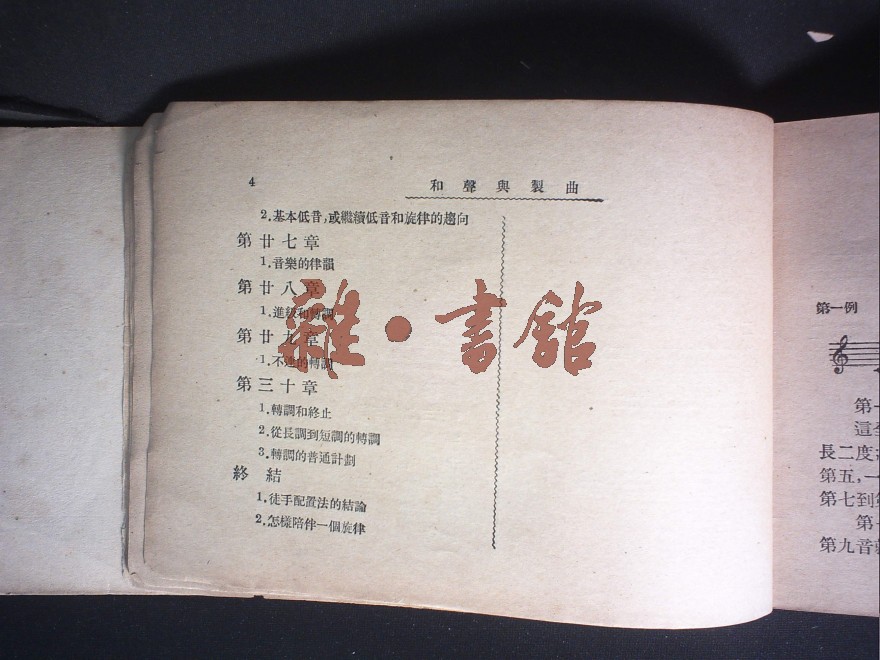 4
和聲與製曲
2.基本低音,或繼續低音和旋律的趨向
第廿七章
1.音樂的律韻
第廿八章
1.進級和轉調
第廿九章
1.不達的轉調
第三十章
1.轉調和終止
2.從長調到短調的轉調
3.轉調的普通計劃
終結
1.徒手配置法的結論
2.怎樣陪伴一個旋律
雜·書館
第一例
第一
這
長二度
第五,一
第七到
第
第九音